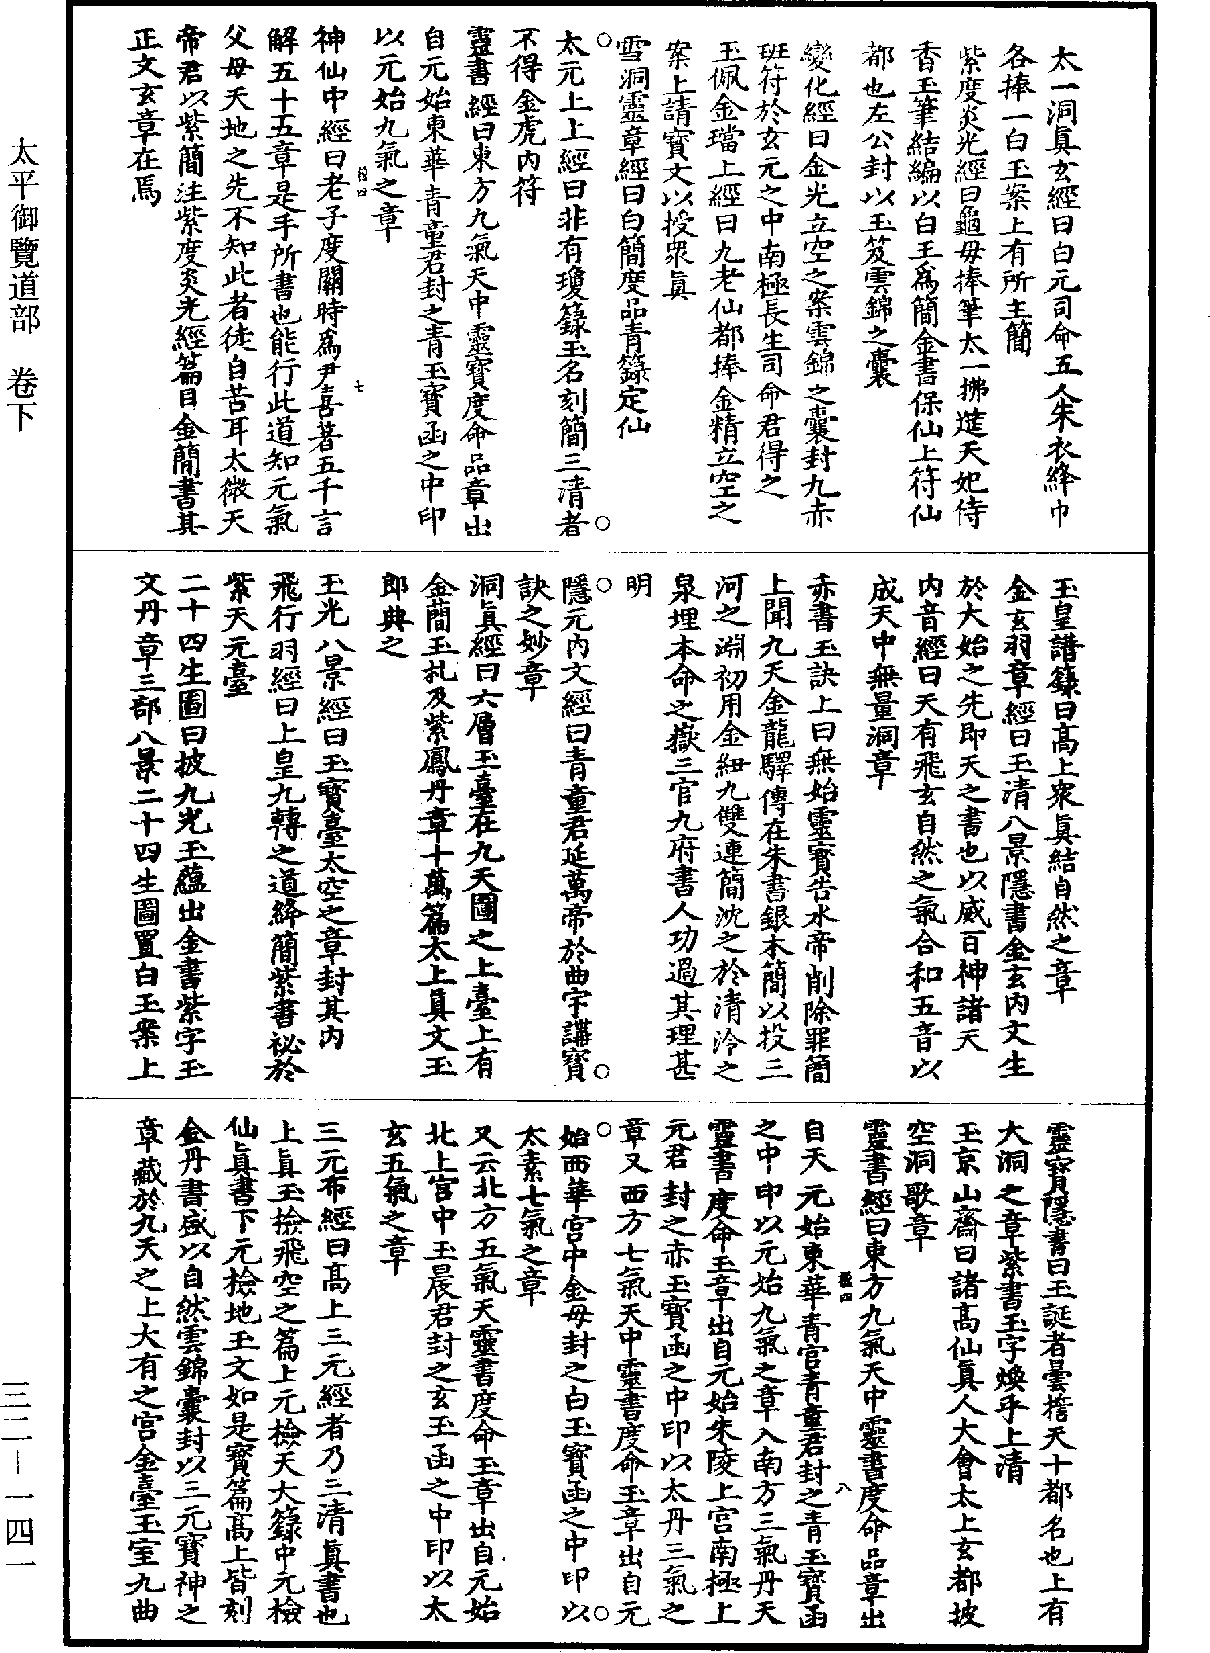 太一洞真玄經曰白元司命五人朱衣絳巾
各捧一白玉案上有所主簡
紫度炎光經曰龜母捧筆太一拂筵天妃侍
香玉筆結編以白玉爲簡金書保仙上符仙
都也左公封以玉笈雲錦之囊
變化經曰金光立空之案雲錦之囊封九赤
班符於玄元之中南極長生司命君得之
玉佩金璫上經曰九老仙都捧金精立空之
案上請寶文以授衆真
雪洞靈章經曰白簡度品青籙定仙
太元上上經曰非有瓊籙玉名刻簡三清者
不得金虎内符
靈書經曰東方九氣天中靈寶度命品章出
自元始東華青童君封之青玉寶函之中印
以元始九氣之章
神仙中經曰老子度關時爲尹喜著五千言
解五十五章是手所書也能行此道知元氣
父母天地之先不知此者徒自苦耳太微天
帝君以紫簡注紫度炎光經篇目金簡書其
正文玄章在焉
玉皇譜籙曰高上衆真結自然之章
金玄羽章經曰玉清八景隱書金玄内文生
於大始之先即天之書也以威百神諸天
内音經曰天有飛玄自然之氣合和五音以
成天中無量洞章
赤書玉訣上曰無始靈寶告水帝削除罪簡
上聞九天金龍驛傳在朱書銀木簡以投三
河之淵初用金紐九雙連簡沈之於清泠之
泉埋本命之嶽三官九府書人功過其理甚
明
隱元内文經曰青童君延萬帝於曲宇講寶
訣之妙章
洞真經曰六層玉臺在九天圖之上臺上有
金蘭玉札及紫鳳丹章十萬篇太上真文玉
郎典之
玉光八景經曰玉寶臺太空之章封其内
飛行羽經曰上皇九轉之道絳簡紫書祕於
紫天元臺
二十四生圖曰披九光玉蘊出金書紫字玉
文丹章三部八景二十四生圖置白玉案上
靈寶隱書曰玉誕者曇揞天十都名也上有
大洞之章紫書玉字煥乎上清
玉京山齋曰諸高仙真人大會太上玄都披
空洞歌章
靈書經曰東方九氣天中靈書度命品章出
自天元始東華青宫青童君封之青玉寶函
之中印以元始九氣之章入南方三氣丹天
靈書度命玉章出自元始朱陵上宫南極上
元君封之赤玉寶函之中印以太丹三氣之
章又西方七氣天中靈書度命玉章出自元
始西華宫中金母封之白玉寶函之中印以
太素七氣之章
又云北方五氣天靈書度命玉章出自元始
北上宫中玉晨君封之玄玉函之中印以太
玄五氣之章
三元布經曰高上三元經者乃三清真書也
上真玉檢飛空之篇上元檢天大籙中元檢
仙真書下元檢地玉文如是寶篇高上皆刻
金丹書盛以自然雲錦囊封以三元寶神之
章藏於九天之上大有之宫金臺玉室九曲
太平御覽道部　卷下
三二—一四一
七
八